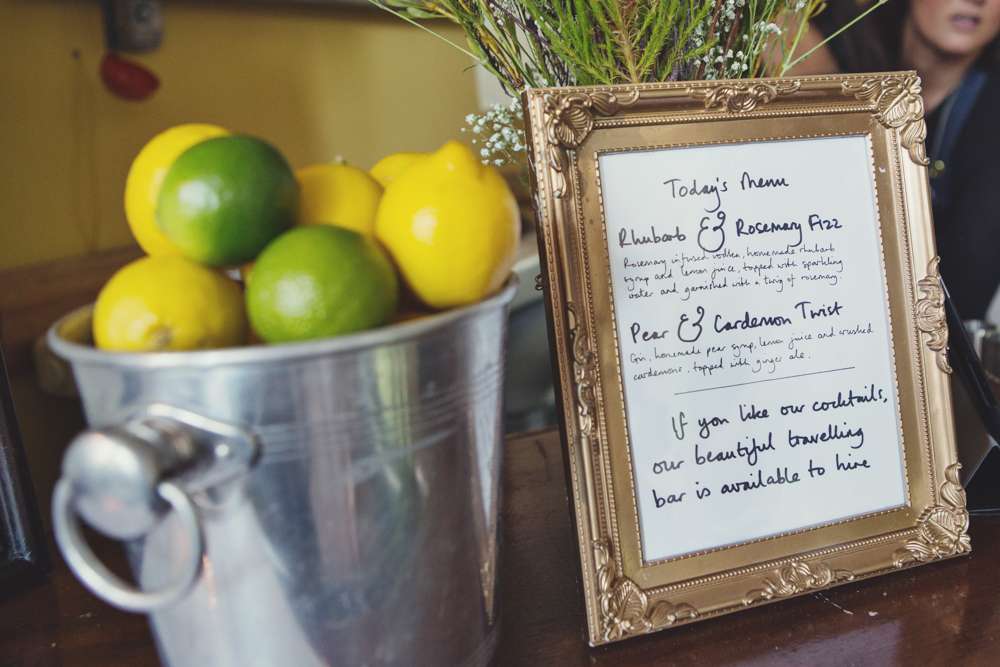 Today's Menu
Rhubarb & Rosemary Fizz
Rosemary infused vodka, homemade rhubarb
syrup and lemon juice, topped with sparkling
water and garnished with a twig of rosemary.
Pear & Cardemon Twist
Gin, homemade pear syrup, lemon juice and crushed
cardemons, topped with ginger ale.
If you like our cocktails,
our beautiful travelling
bar is available to hire